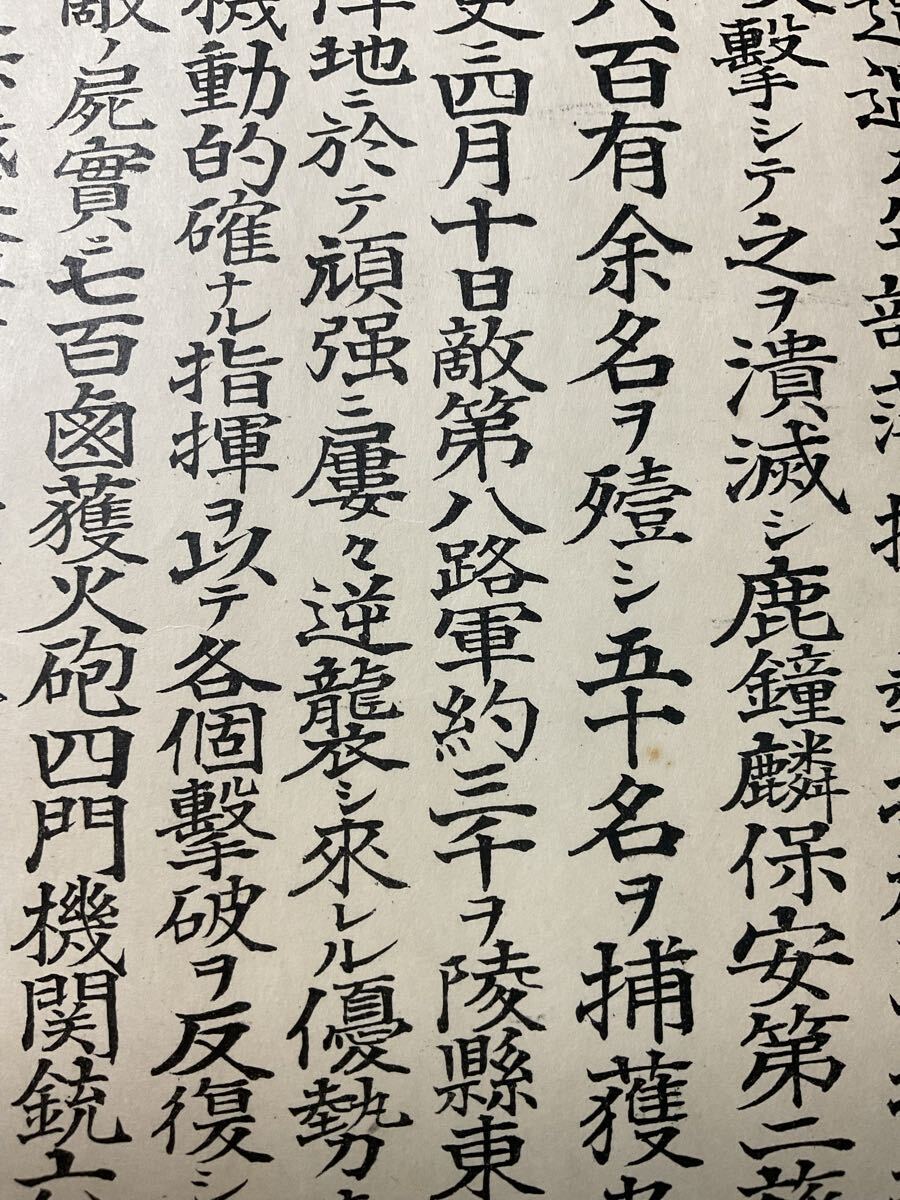 撃シテ之ヲ潰滅シ鹿鐘麟保安第二
八百有余名ヲ殪シ五十名ヲ捕獲
更ニ四月十日敵第八路軍約三千ヲ陵縣東
地ニ於テ頑强ニ屢々逆襲シ來レル優勢
機動的確ナル指揮ヲ以テ各個擊破ヲ反復シ
敵ノ屍實ニ七百鹵獲火砲四門機関銃